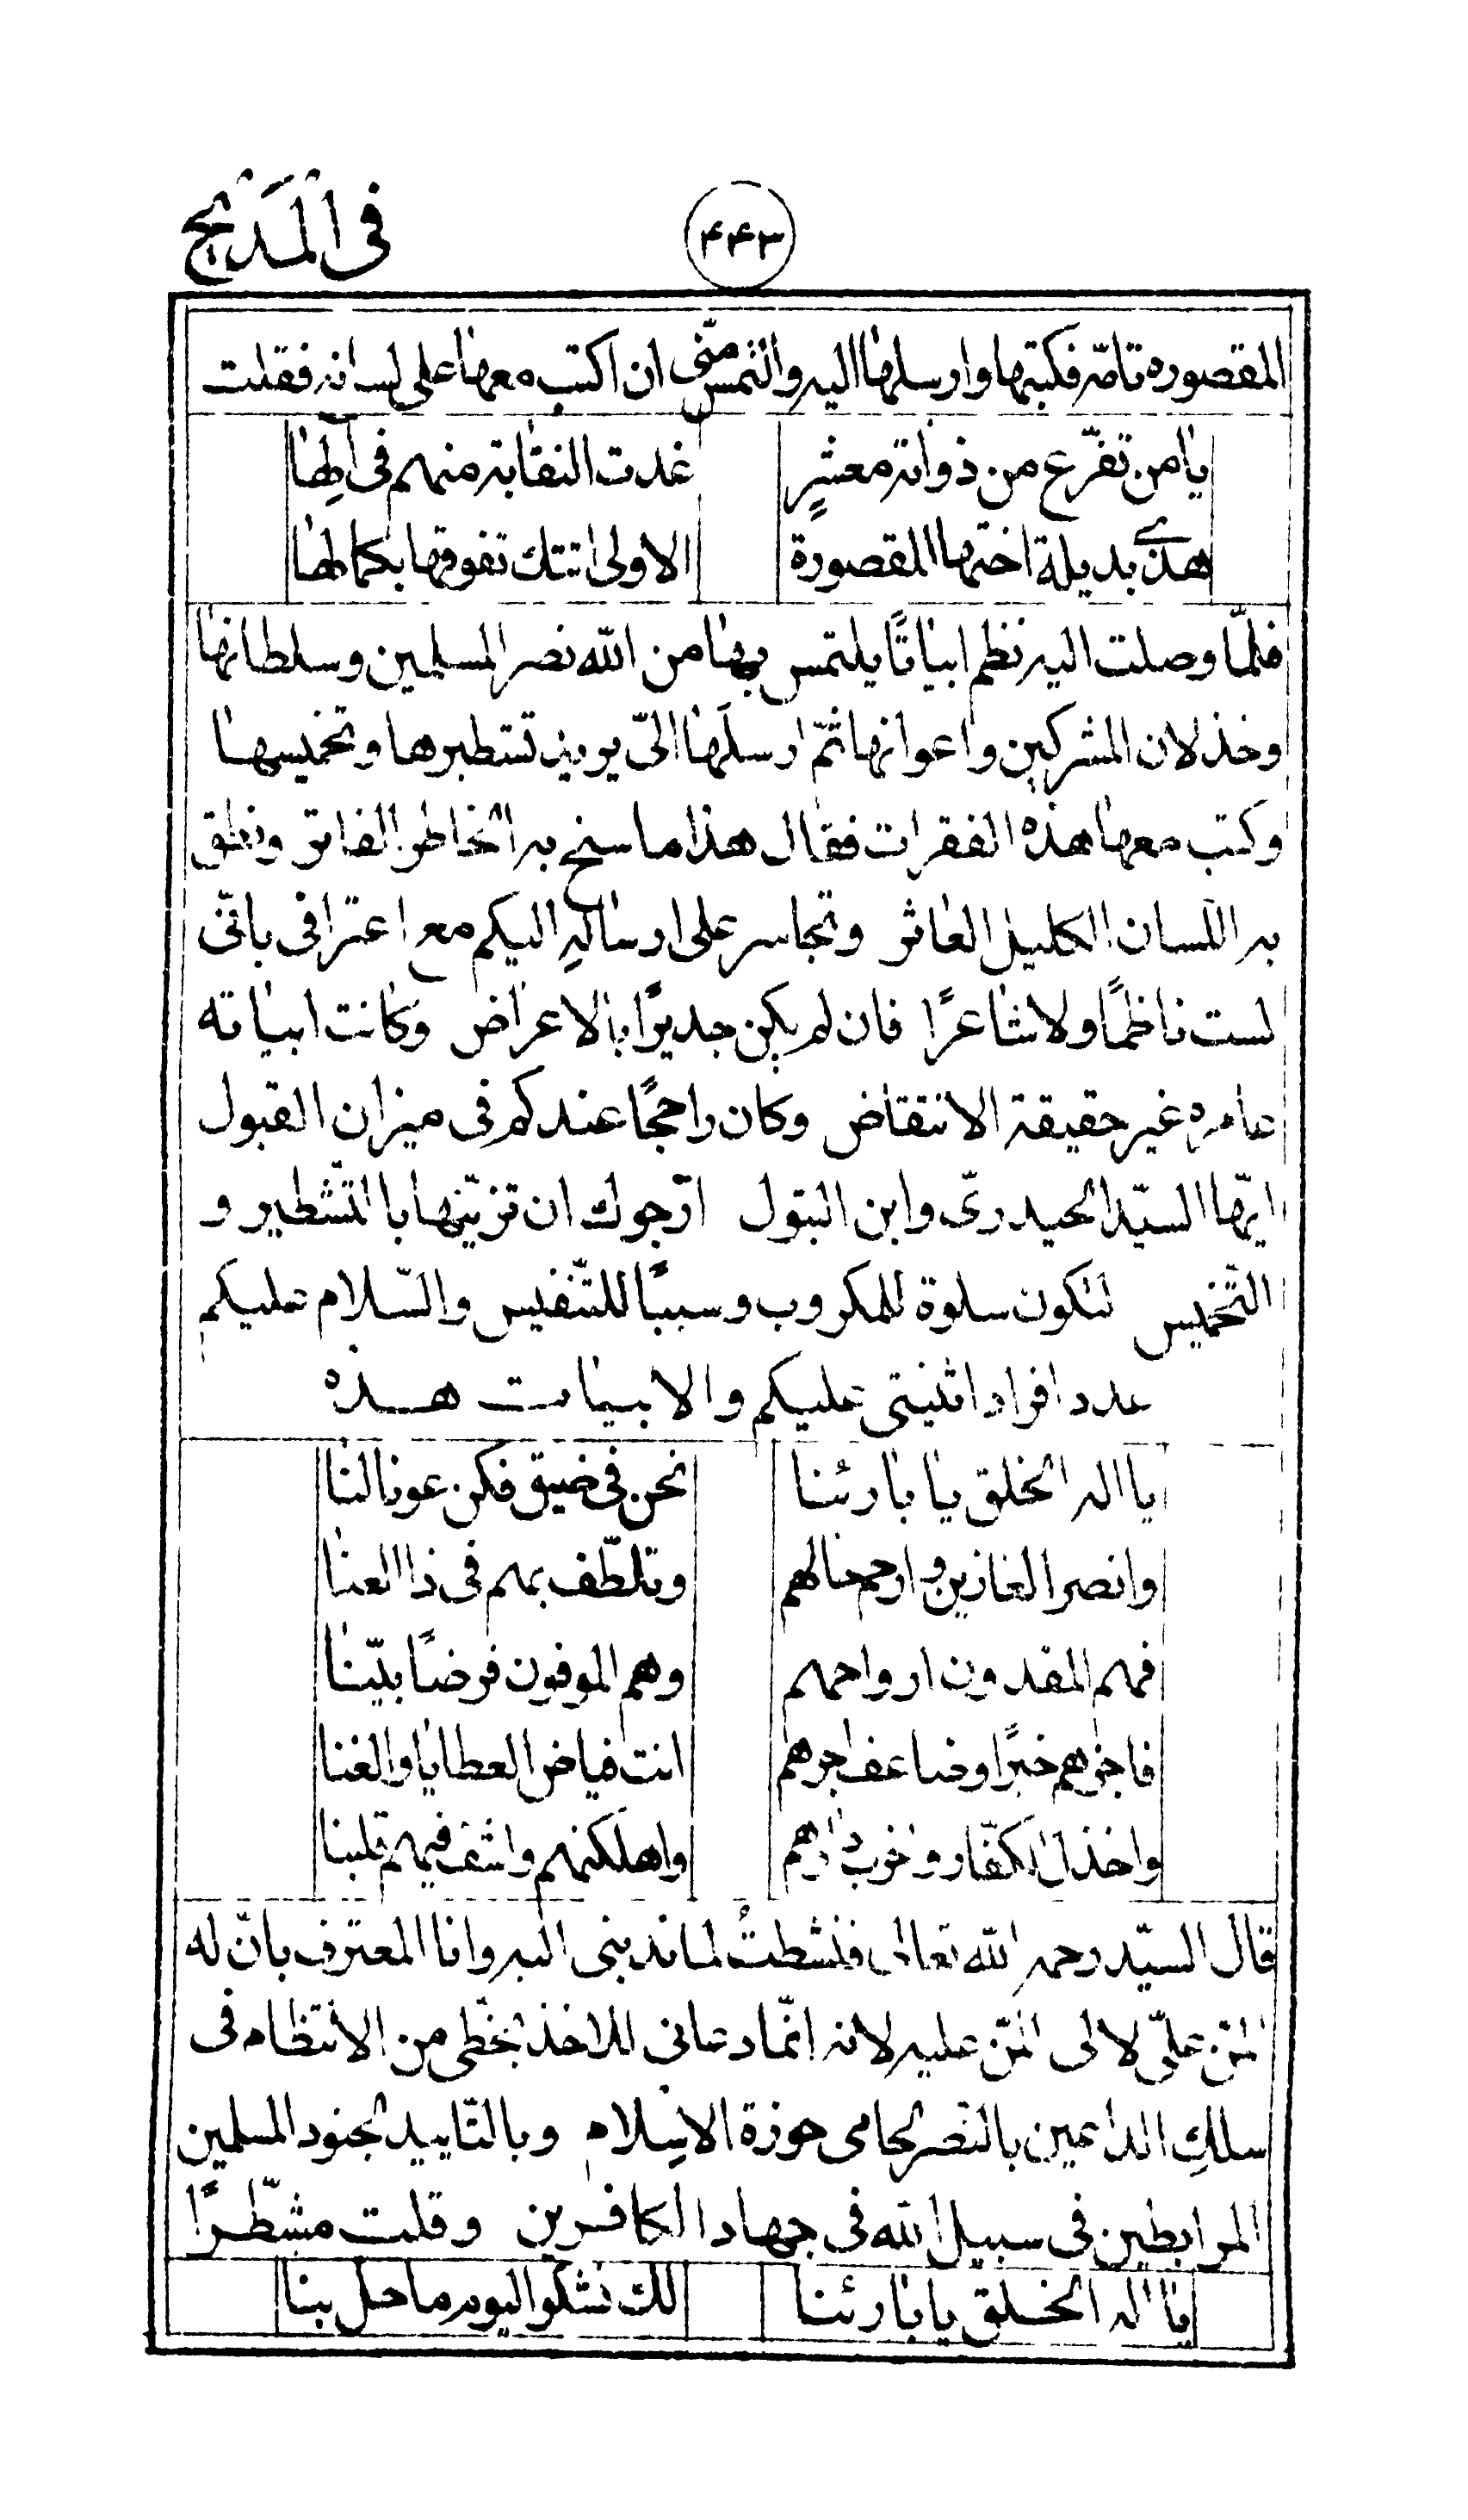 فى المَديح
۴۴۳
المقصوره تامّه فكتبتها وارسلها اليه والتمس منّى ان اكتب معها على لسانه فقلت
يا من تفرّع من ذوابة معشرٍ غدت النقابة منهم فى الِها
هذى بديلة اختها المقصورة الاولى اتتك تفوقها بكمالها
فلمّا وصلت اليه نظم ابياتًا يلتمس بها من اللّه نصر المسلمين وسلطانها
وخذلان المشركين واعوانها ثمّ ارسلَها الىّ يريد تشطيرها وتخميسها
وكتب معها هذه الفقرات فقال هذا ما سنح به الخاطر الفاتر ونطق
به اللّسان الكليل العاثر وتجاسر على ارسالِهِ اليكم مع اعترافى بانّنى
لست ناظمًا ولا شاعرًا فان لم يكن جديرًا بالاعراض وكانت ابياته
عامره غير حقيقة الانتقاض وكان راجحًا عندكم فى ميزان القبول
ايّها السيّد الحيدرىّ وابن البتول ارجوك ان تزيّنها بالتّشطير و
التّخميس لتكون سلوة للمكروب وسببًا للتّنفيس والسّلام عليكم
عدد افراد اثنيتى عليكم والابيات هذه
يا اله الخلق يا بارئنا نحن فى ضيق فكن عونا لنا
وانصر الغازين وارحم حالهم وتلطّف بهم فى ذا العنا
فهم المفدون ارواحهم وهم الموفون فرضًا بيّنا
فاجزهم خيرًا وضاعف اجرهم انت فياض العطايا والغنا
واخذل الكفّار واخرب دارهم واهلكنهم واشف فيهم قلبنا
قال السيّد رحمه اللّه تعالى فنشطتُ لما ندبنى اليه وانا المعترف بانّ له
المنّ علىّ لا لى المنّ عليه لانه انّما دعانى للاخذ بحظّى من الانتظام فى
سلكِ الداعين بالنّصر لحامى حوزة الاسلام وبالتّاييد لجنود المسلمين
المرابطين فى سبيل اللّه فى جهاد الكافرين وقلت مشطّرًا
يا اله الخلق يا بارئنا لك نشكو اليوم ما حل بنا